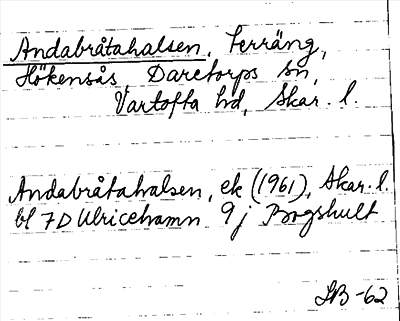 Andabråtahalsen, Terräng,
Hökensås Daretorps sn,
Vartofta hd, Skar. l.
Andabråtahalsen, ek (1961), Skar. l.
bl 7D Ulricehamn 9j Bogshult
SB -62